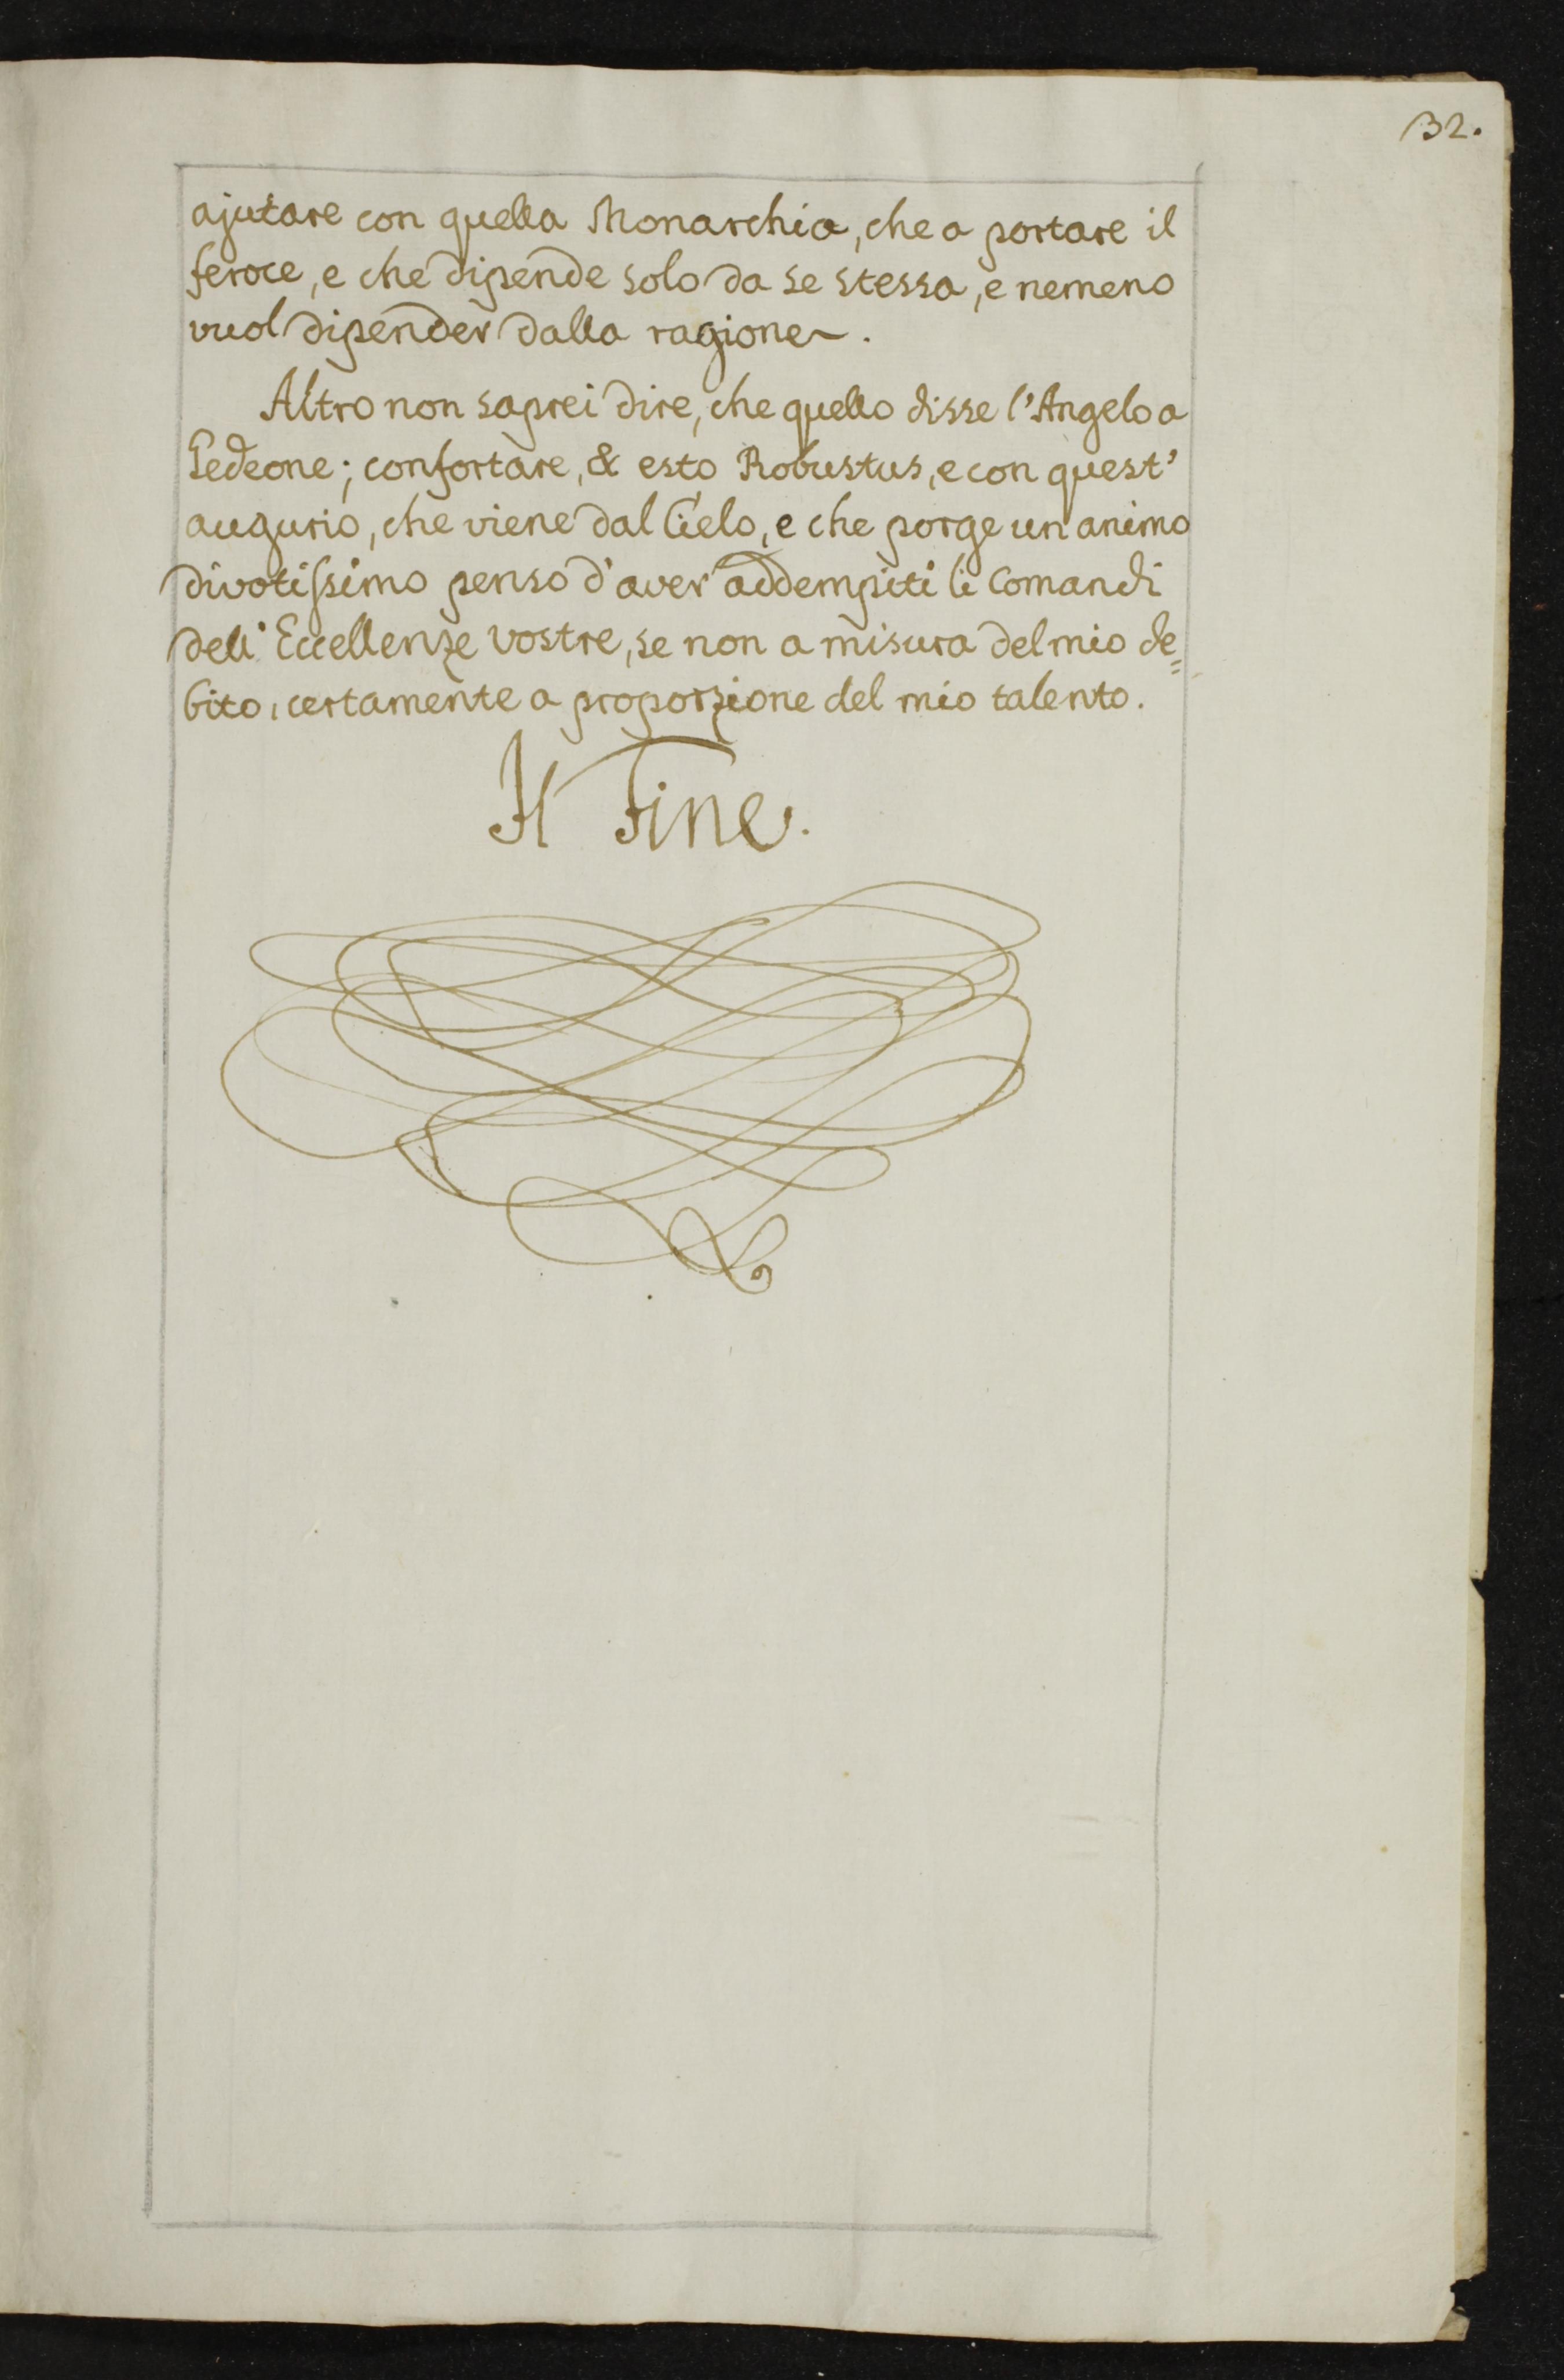 32.
ajutare con quella Monarchia, che a portare il
feroce, e che dipende solo da se stessa, e nemeno
vuol dipender dalla ragione.
Altro non saprei dire, che quello disse l'Angelo a
Gedeone; confortare, & esto Robustus, e con quest'
augurio, che viene dal Cielo, e che porge un animo
divotissimo penso d'aver addempiti li Comandi
dell' Eccellenze Vostre, se non a misura del mio de=
bito, certamente a proporzione del mio talento.
Il Fine.